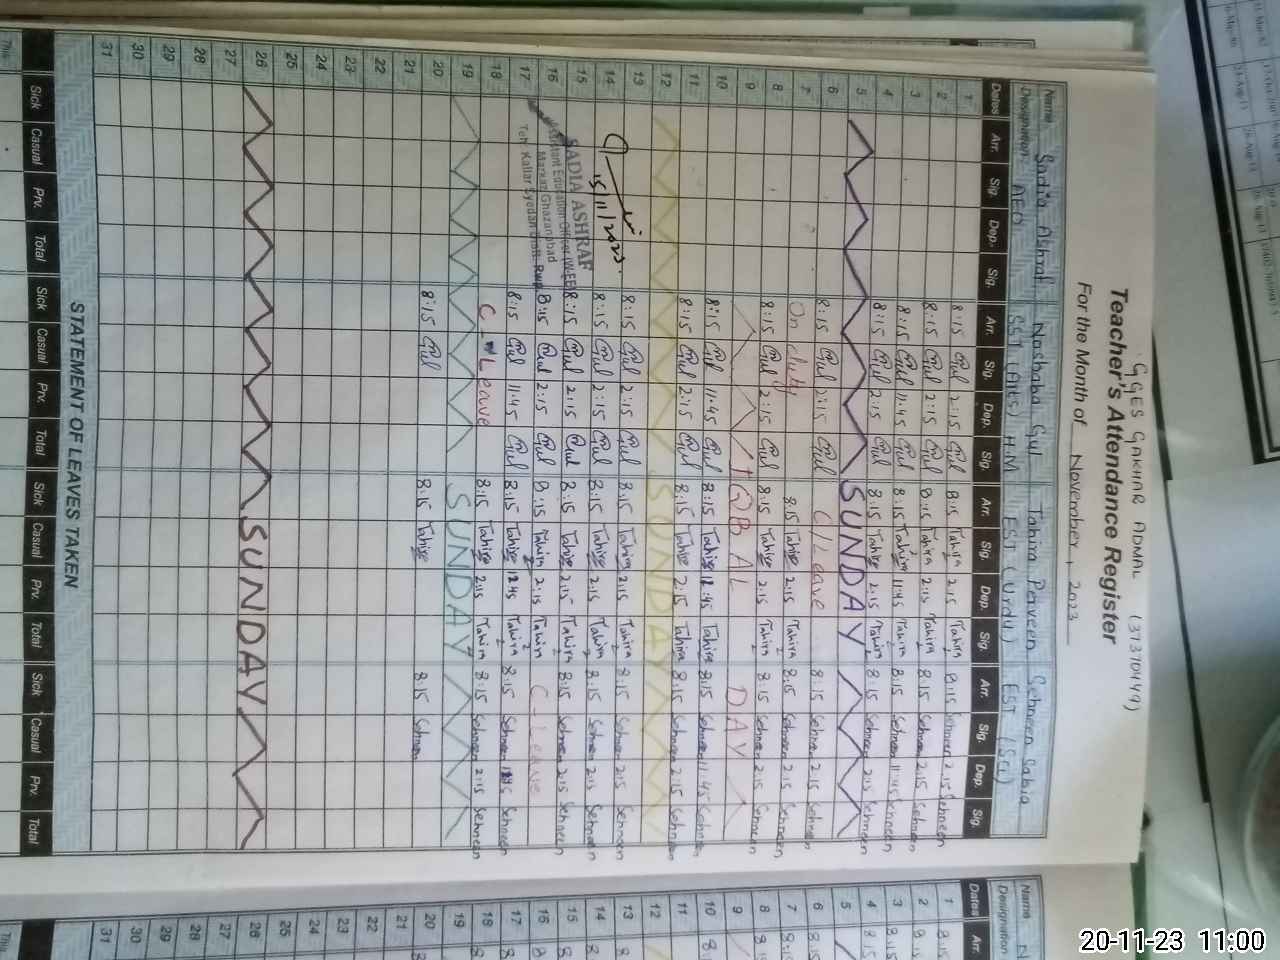 GGES GAKHAR ADMAL (37370449)
Teacher's Attendance Register
For the Month of November, 2023
Name Sadia Ashraf Noshaba Gul Tahira Perveen Sehneen Sabia
Designation AEO SST (Arts) H.M EST (Urdu) EST (Sci)
Dates Arr. Sig. Dep. Sig. Arr. Sig. Dep. Sig. Arr. Sig. Dep. Sig. Arr. Sig. Dep. Sig.
1 8:15 Gul 2:15 Gul 8:15 Tahira 2:15 Tahira 8:15 Sehneen 2:15 Sehneen
2 8:15 Gul 2:15 Gul 8:15 Tahira 2:15 Tahira 8:15 Sehneen 2:15 Sehneen
3 8:15 Gul 11:45 Gul 8:15 Tahira 11:45 Tahira 8:15 Sehneen 11:45 Sehneen
4 8:15 Gul 2:15 Gul 8:15 Tahira 2:15 Tahira 8:15 Sehneen 2:15 Sehneen
5 SUNDAY
6 8:15 Gul 2:15 Gul C/Leave 8:15 Sehneen 2:15 Sehneen
7 On duty 8:15 Tahira 2:15 Tahira 8:15 Sehneen 2:15 Sehneen
8 8:15 Gul 2:15 Gul 8:15 Tahira 2:15 Tahira 8:15 Sehneen 2:15 Sehneen
9 IQBAL DAY
10 8:15 Gul 11:45 Gul 8:15 Tahira 12:45 Tahira 8:15 Sehneen 11:45 Sehneen
11 8:15 Gul 2:15 Gul 8:15 Tahira 2:15 Tahira 8:15 Sehneen 2:15 Sehneen
12 SUNDAY
13 8:15 Gul 2:15 Gul 8:15 Tahira 2:15 Tahira 8:15 Sehneen 2:15 Sehneen
14 8:15 Gul 2:15 Gul 8:15 Tahira 2:15 Tahira 8:15 Sehneen 2:15 Sehneen
15 8:15 Gul 2:15 Gul 8:15 Tahira 2:15 Tahira 8:15 Sehneen 2:15 Sehneen
16 8:15 Gul 2:15 Gul 8:15 Tahira 2:15 Tahira C-Leave
17 8:15 Gul 11:45 Gul 8:15 Tahira 12:45 Tahira 8:15 Sehneen Sehneen
18 C-Leave 8:15 Tahira 2:15 Tahira 8:15 Sehneen 2:15 Sehneen
19 SUNDAY
20 8:15 Gul 8:15 Tahira 8:15 Sehneen
21
22
23
24
25
26 SUNDAY
27
28
29
30
31
15/11/2023
SADIA ASHRAF
Assistant Education Officer (W-EE)
Markaz Ghazanabad
Teh: Kallar Syedan Distt. Rwp
STATEMENT OF LEAVES TAKEN
Sick Casual Prv. Total Sick Casual Prv. Total Sick Casual Prv. Total Sick Casual Prv. Total
This
Name
Designation
Dates Arr.
1 8:15
2 8:15
3 8:15
4 8:15
5
6 8:15
7 8:15
8 8:15
9
10 8:
11
12
13 8
14 8
15 8
16 8
17 8
18 8
19
20
21
22
23
24
25
26
27
28
29
30
31
This
20-11-23 11:00